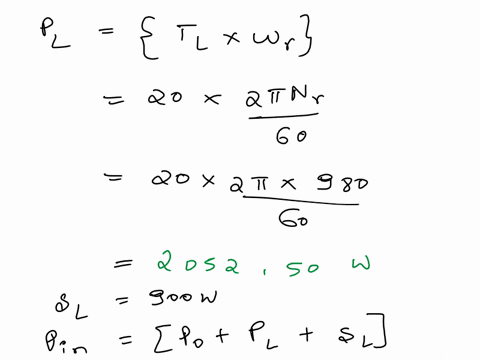 P_L = { T_L × ω_r }
= 20 × 2πN_r / 60
= 20 × 2π × 980 / 60
= 2052.50 W
S_L = 900W
P_in = [P_0 + P_L + S_L]